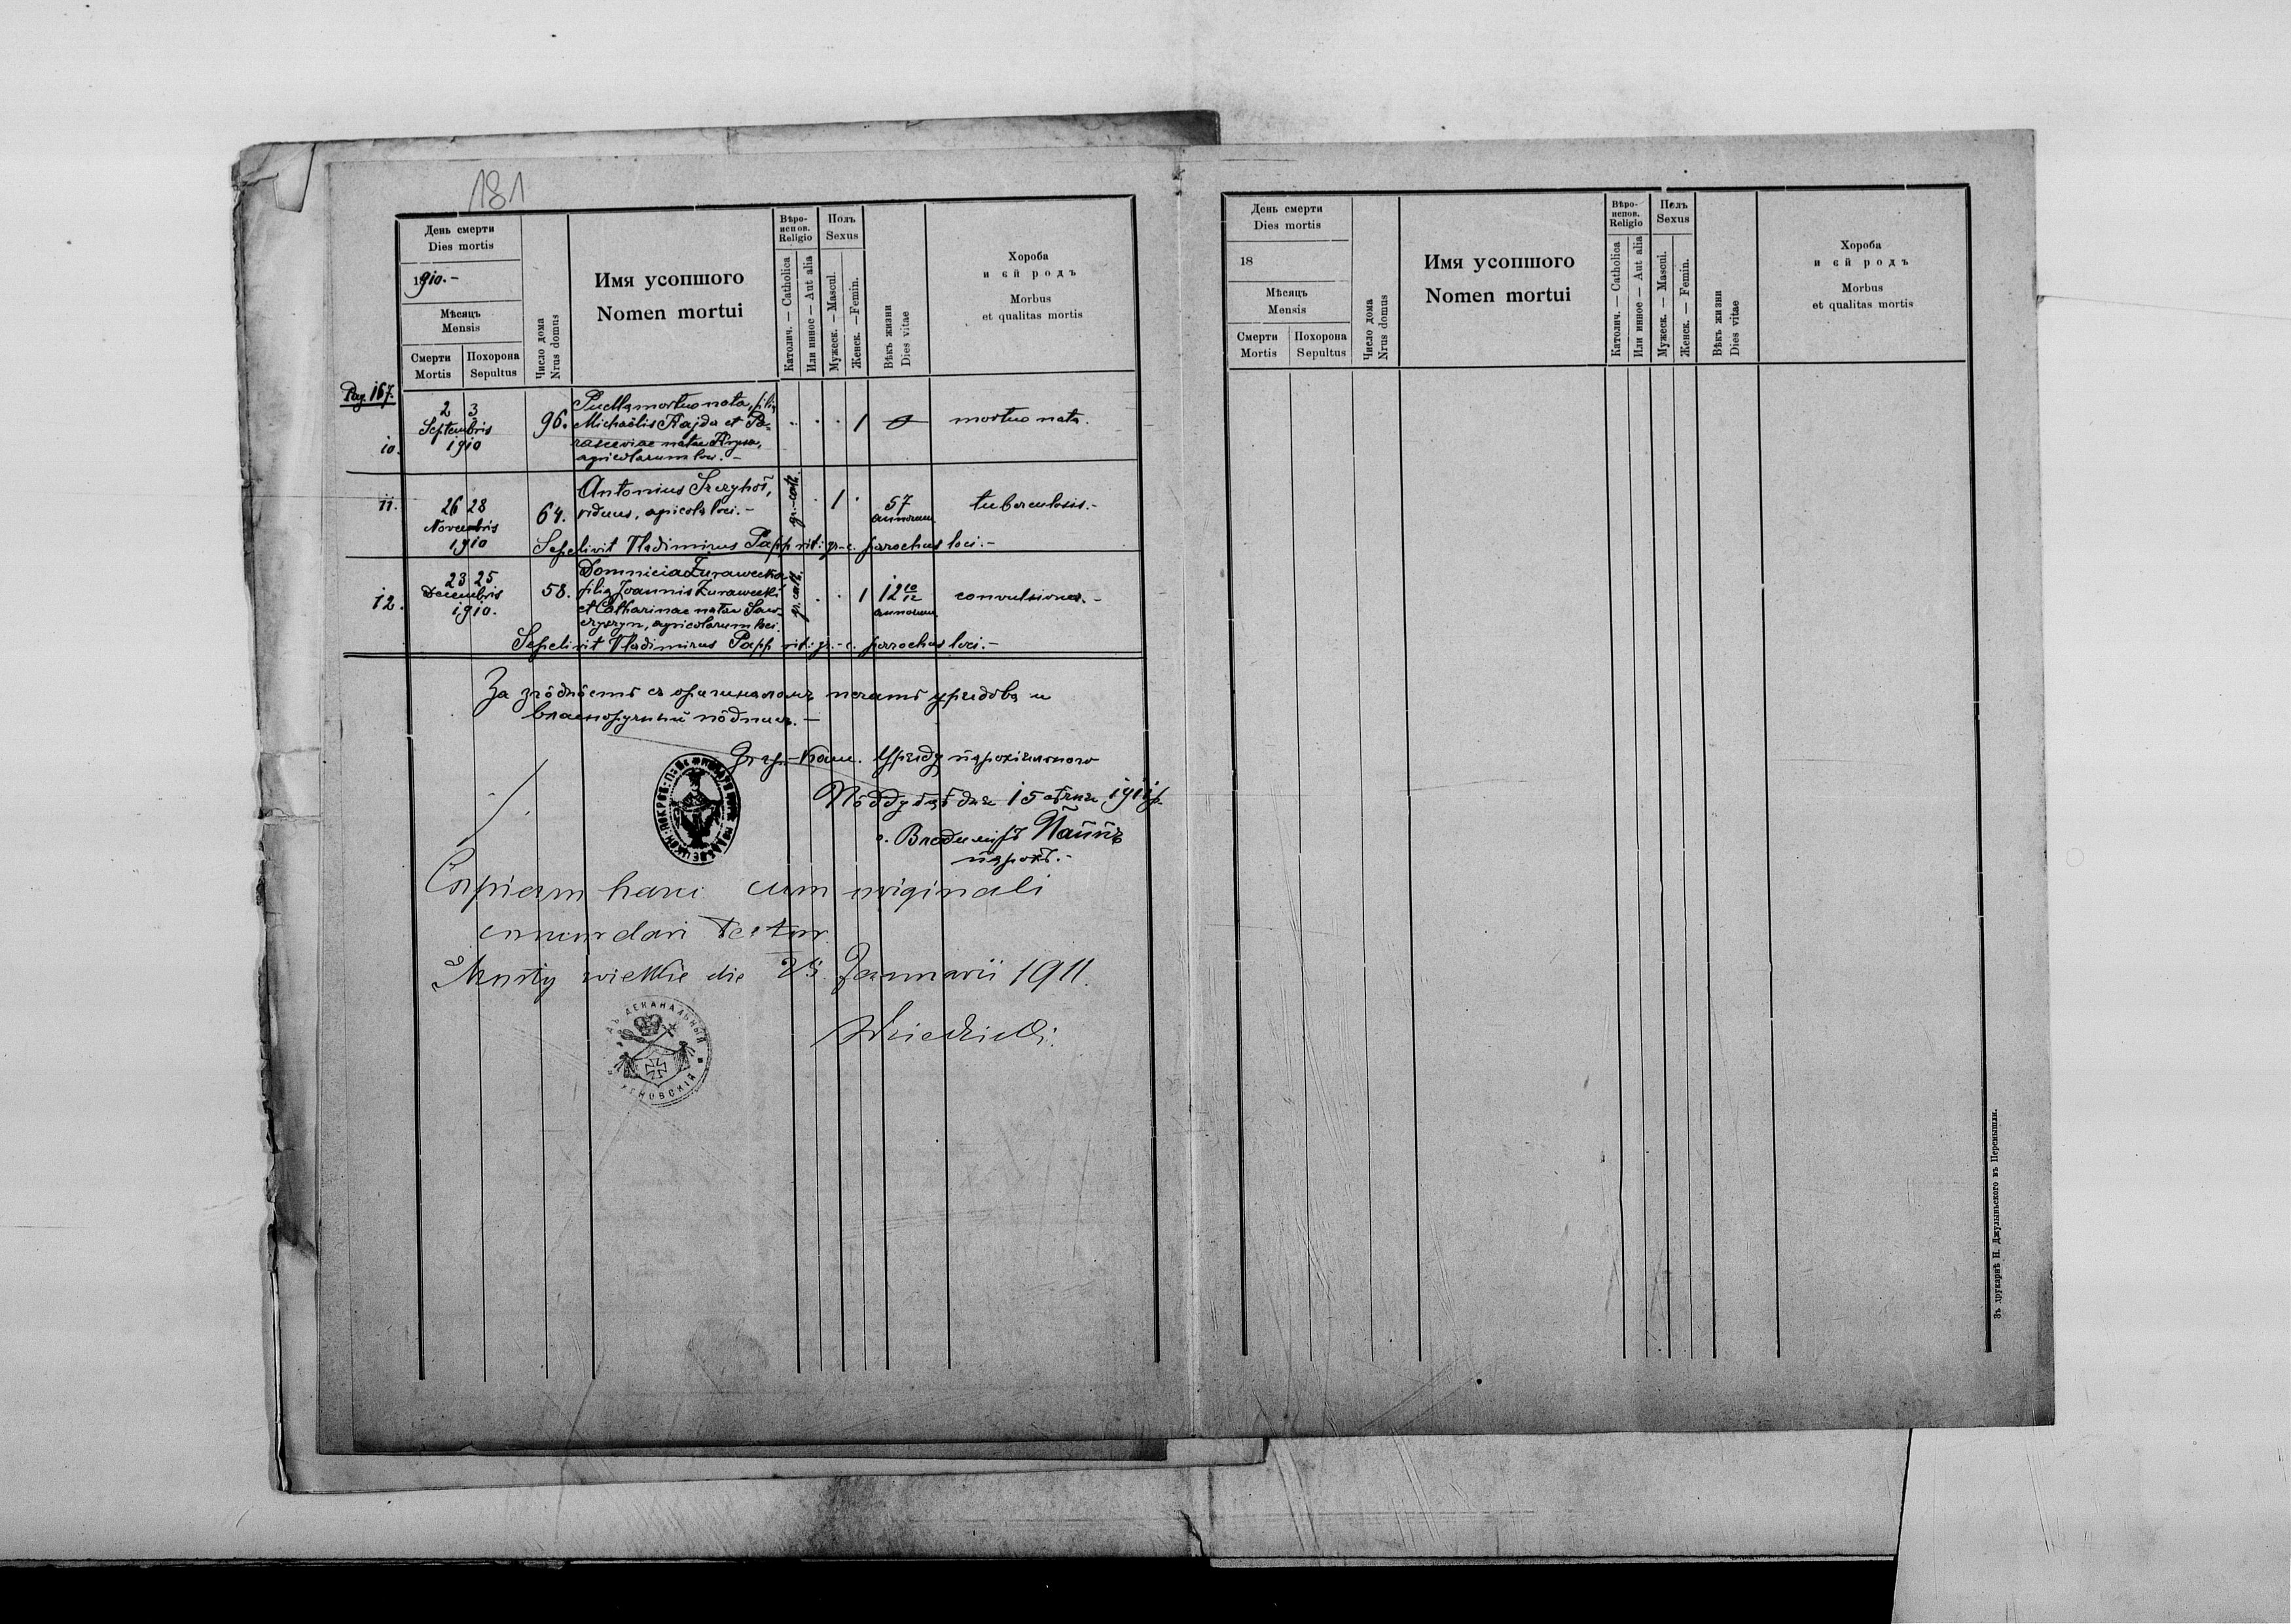 181
День смерти
Dies mortis
1910.-
Мѣсяць
Mensis
Смерти
Mortis
Похорона
Sepultus
Число дома
Nrus domus
Имя усопшого
Nomen mortui
Вѣро-
испов.
Religio
Католич. — Catholica
Или инное — Aut alia
Полъ
Sexus
Мужеск. — Mascul.
Женск. — Femin.
Вѣкъ жизни
Dies vitae
Хороба
и єй родъ
Morbus
et qualitas mortis
Pag. 167.
10.
2 3
Septembris
1910
96.
Puella mortuo nata, filia
Michaëlis Hajda et Pa-
rasceviae natae
agricolarum loci.-
1
mortuo nata.
11.
26 28
Novembris
1910
64.
Antonius
viduus, agricola loci.-
gr.-cath.
1
57
annorum
tuberculosis.-
Sepelivit Vladimirus Papp rit: gr.-c. parochus loci.-
12.
23 25
Decembris
1910.
58.
Domnicia Żurawecka
filia Joannis Żurawecki
et Catharinae natae Saw-
czyszyn, agricolarum loci.
gr. cath.
1
12 10/12
annorum
convulsiones.-
Sepelivit Vladimirus Papp rit: gr.-c. parochus loci.-
За згôднôсть съ оригиналомъ печать урядова и
власноручный пôдпись.-
Уряду парохіяльного
дня 15 1911 р.
о. Владиміръ Паппъ
парохъ.-
Copiam hanc cum originali
concordari testor
Mosty wielkie die 25. Januarii 1911.
ДЕКАНАЛЬНЫЙ
День смерти
Dies mortis
18
Мѣсяць
Mensis
Смерти
Mortis
Похорона
Sepultus
Число дома
Nrus domus
Имя усопшого
Nomen mortui
Вѣро-
испов.
Religio
Католич. — Catholica
Или инное — Aut alia
Полъ
Sexus
Мужеск. — Mascul.
Женск. — Femin.
Вѣкъ жизни
Dies vitae
Хороба
и єй родъ
Morbus
et qualitas mortis
Зъ друкарнѣ Н. Джулыньского въ Перемышли.